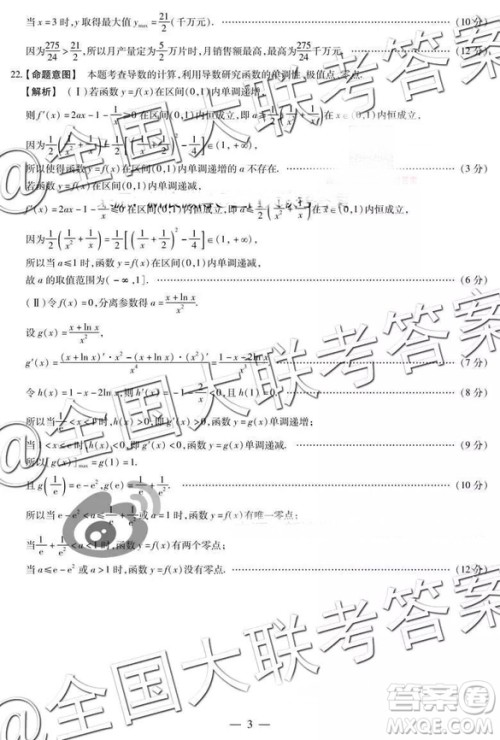 当 x = 3 时,y 取得最大值 y_max = 21/2 (千万元). (10 分)
因为 275/24 > 21/2,所以月产量定为 5/2 万片时,月销售额最高,最高为 275/24 千万元. (12 分)
22.【命题意图】 本题考查导数的计算,利用导数研究函数的单调性、极值点、零点.
【解析】 (Ⅰ)若函数 y = f(x) 在区间(0,1)内单调递增,
则 f′(x) = 2ax - 1 - 1/x ≥ 0 在区间(0,1)内恒成立,即 a ≥ 1/2(1/x² + 1/x) 在 x ∈ (0,1) 内恒成立,
因为 1/2(1/x² + 1/x) = 1/2[(1/x + 1/2)² - 1/4] ∈ (1, +∞),
所以使得函数 y = f(x) 在区间(0,1)内单调递增的 a 不存在. (3 分)
若函数 y = f(x) 在区间(0,1)内单调递减,
f′(x) = 2ax - 1 - 1/x ≤ 0 在区间(0,1)内恒成立,即 a ≤ 1/2(1/x² + 1/x) 在 (0,1) 内恒成立,
因为 1/2(1/x² + 1/x) = 1/2[(1/x + 1/2)² - 1/4] ∈ (1, +∞),
所以当 a ≤ 1 时,函数 y = f(x) 在区间(0,1)内单调递减,
故 a 的取值范围为(-∞,1]. (6 分)
(Ⅱ)令 f(x) = 0,分离参数得 a = (x + ln x)/x².
设 g(x) = (x + ln x)/x²,
g′(x) = ((x + ln x)′·x² - (x + ln x)·(x²)′)/x⁴ = (1 - x - 2ln x)/x³. (7 分)
令 h(x) = 1 - x - 2ln x,则 h′(x) = -1 - 2/x < 0,且 h(1) = 0. (8 分)
所以当 1/e < x < 1 时,h(x) > 0,即 g′(x) > 0,函数 y = g(x) 单调递增;
当 1 < x < e 时,h(x) < 0,即 g′(x) < 0,函数 y = g(x) 单调递减. (9 分)
所以[g(x)]_max = g(1) = 1.
且 g(1/e) = e - e²,g(e) = 1/e + 1/e². (10 分)
所以当 e - e² < a ≤ 1/e + 1/e² 或 a = 1 时,函数 y = f(x) 有唯一零点;
当 1/e + 1/e² < a < 1 时,函数 y = f(x) 有两个零点;
当 a ≤ e - e² 或 a > 1 时,函数 y = f(x) 没有零点. (12 分)
— 3 —
@全国大联考答案
@全国大联考答案
@全国大联考答案
答案圈
MXQE.COM